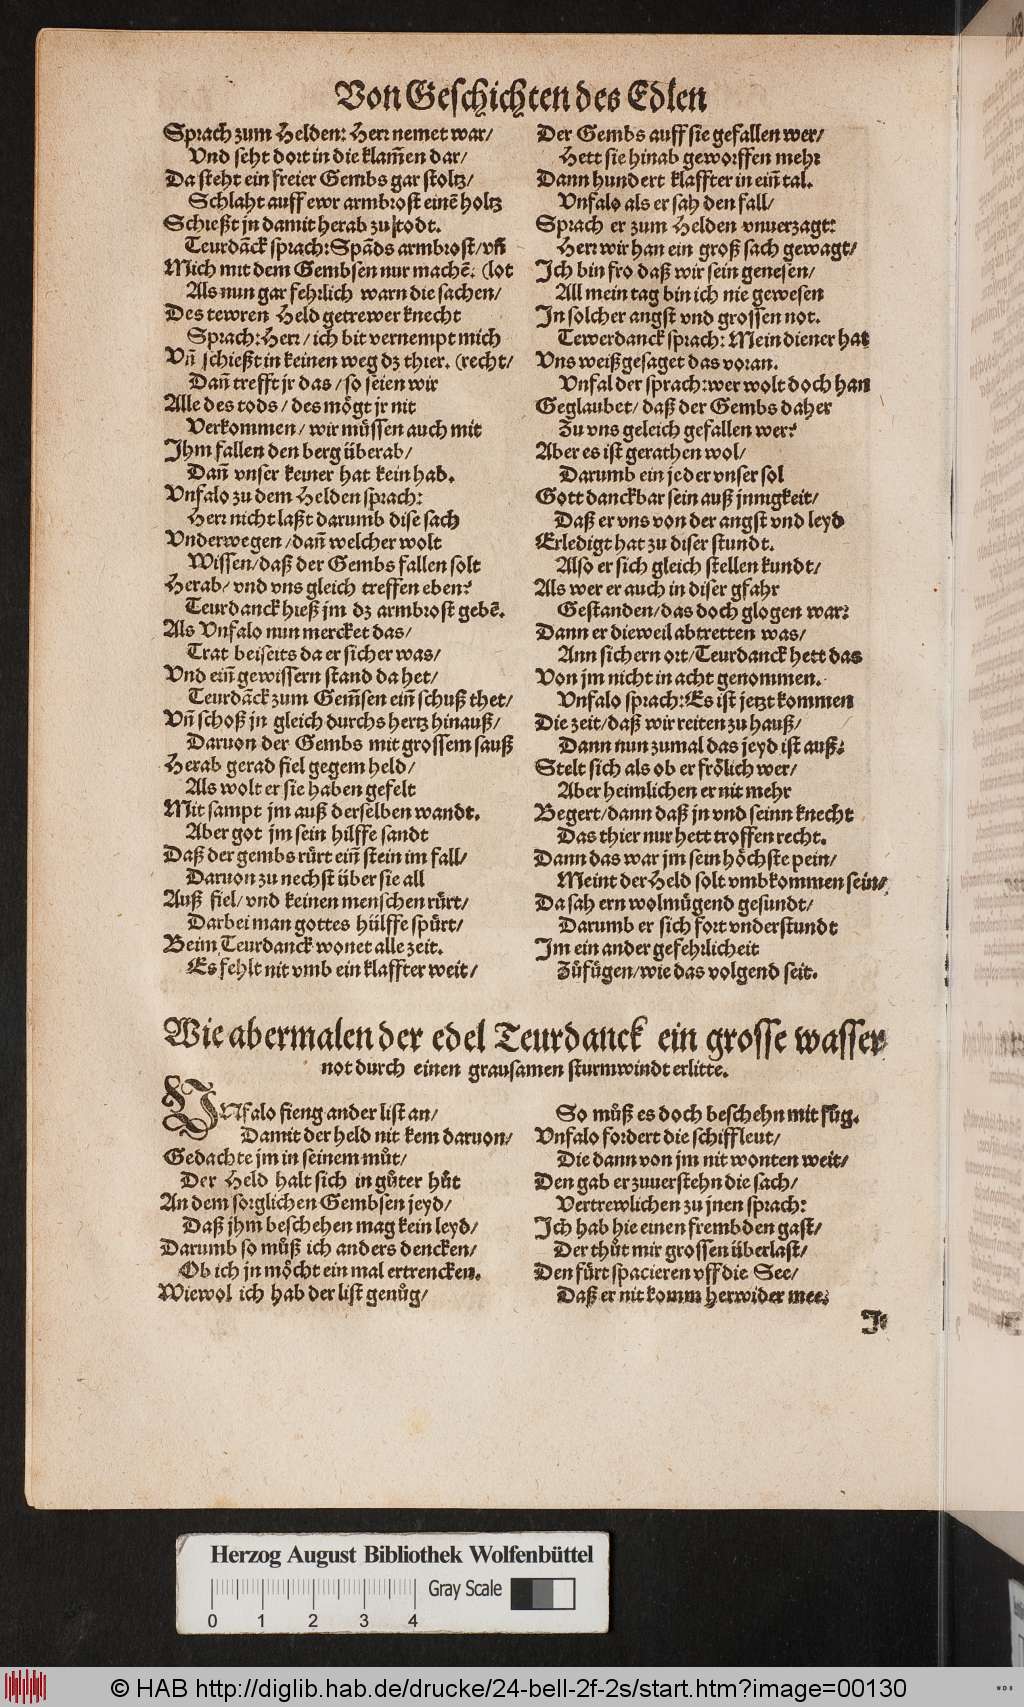 Von Geschichten des Edlen
Sprach zum Helden: Herr nemet war/
Vnd seht dort in die klam̃en dar/
Da steht ein freier Gembs gar stoltz/
Schlaht auff ewr armbrost einē holtz
Schießt jn damit herab zu todt.
Teurdāck sprach: Spāds armbrost/ vñ
Mich mit dem Gembsen nur machē. (lot
Als nun gar fehrlich warn die sachen/
Des tewren Held getrewer knecht
Sprach: Herr/ ich bit vernempt mich
Vñ schießt in keinen weg dz thier. (recht/
Dañ trefft jr das/ so seien wir
Alle des tods/ des moͤgt jr nit
Verkommen/ wir muͤssen auch mit
Ihm fallen den berg uͤberab/
Dañ vnser keiner hat kein hab.
Vnfalo zu dem Helden sprach:
Herr nicht laßt darumb dise sach
Vnderwegen/ dañ welcher wolt
Wissen/ daß der Gembs fallen solt
Herab/ vnd vns gleich treffen eben?
Teurdanck hieß jm dz armbrost gebē.
Als Vnfalo nun mercket das/
Trat beiseits da er sicher was/
Vnd eiñ gewissern stand da het/
Teurdāck zum Gem̃sen eiñ schuß thet/
Vñ schoß jn gleich durchs hertz hinauß/
Daruon der Gembs mit grossem sauß
Herab gerad fiel gegem held/
Als wolt er sie haben gefelt
Mit sampt jm auß derselben wandt.
Aber got jm sein hilffe sandt
Daß der gembs ruͤrt eiñ stein im fall/
Daruon zu nechst uͤber sie all
Auß fiel/ vnd keinen menschen ruͤrt/
Darbei man gottes huͤlffe spuͤrt/
Beim Teurdanck wonet alle zeit.
Es fehlt nit vmb ein klaffter weit/
Der Gembs auff sie gefallen wer/
Hett sie hinab geworffen mehr
Dann hundert klaffter in eiñ tal.
Vnfalo als er sah den fall/
Sprach er zum Helden vnuerzagt:
Herr wir han ein groß sach gewagt/
Ich bin fro daß wir sein genesen/
All mein tag bin ich nie gewesen
In solcher angst vnd grossen not.
Tewerdanck sprach: Mein diener hat
Vns weißgesaget das voran.
Vnfal der sprach: wer wolt doch han
Geglaubet/ daß der Gembs daher
Zu vns geleich gefallen wer?
Aber es ist gerathen wol/
Darumb ein jeder vnser sol
Gott danckbar sein auß jnnigkeit/
Daß er vns von der angst vnd leyd
Erledigt hat zu diser stundt.
Also er sich gleich stellen kundt/
Als wer er auch in diser gfahr
Gestanden/ das doch glogen war:
Dann er dieweil abtretten was/
Ann sichern ort/ Teurdanck hett das
Von jm nicht in acht genommen.
Vnfalo sprach: Es ist jetzt kommen
Die zeit/ daß wir reiten zu hauß/
Dann nun zumal das jeyd ist auß:
Stelt sich als ob er froͤlich wer/
Aber heimlichen er nit mehr
Begert/ dann daß jn vnd seinn knecht
Das thier nur hett troffen recht.
Dann das war jm sein hoͤchste pein/
Meint der Held solt vmbkommen sein/
Da sah ern wolmuͤgend gesundt/
Darumb er sich fort vnderstundt
Im ein ander gefehrlicheit
Zuͤfuͤgen/ wie das volgend seit.
Wie abermalen der edel Teurdanck ein grosse wasser
not durch einen grausamen sturmwindt erlitte.
VNfalo fieng ander list an/
Damit der held nit kem daruon/
Gedachte jm in seinem muͦt/
Der Held halt sich in guͦter huͦt
An dem sorglichen Gembsen jeyd/
Daß jhm beschehen mag kein leyd/
Darumb so muͦß ich anders dencken/
Ob ich jn moͤcht ein mal ertrencken.
Wiewol ich hab der list genuͦg/
So muͦß es doch beschehn mit fuͦg.
Vnfalo fordert die schiffleut/
Die dann von jm nit wonten weit/
Den gab er zuuerstehn die sach/
Vertrewlichen zu jnen sprach:
Ich hab hie einen frembden gast/
Der thuͦt mir grossen uͤberlast/
Den fuͤrt spacieren vff die See/
Daß er nit komm herwider mee:
Herzog August Bibliothek Wolfenbüttel
Gray Scale
0 1 2 3 4
© HAB http://diglib.hab.de/drucke/24-bell-2f-2s/start.htm?image=00130